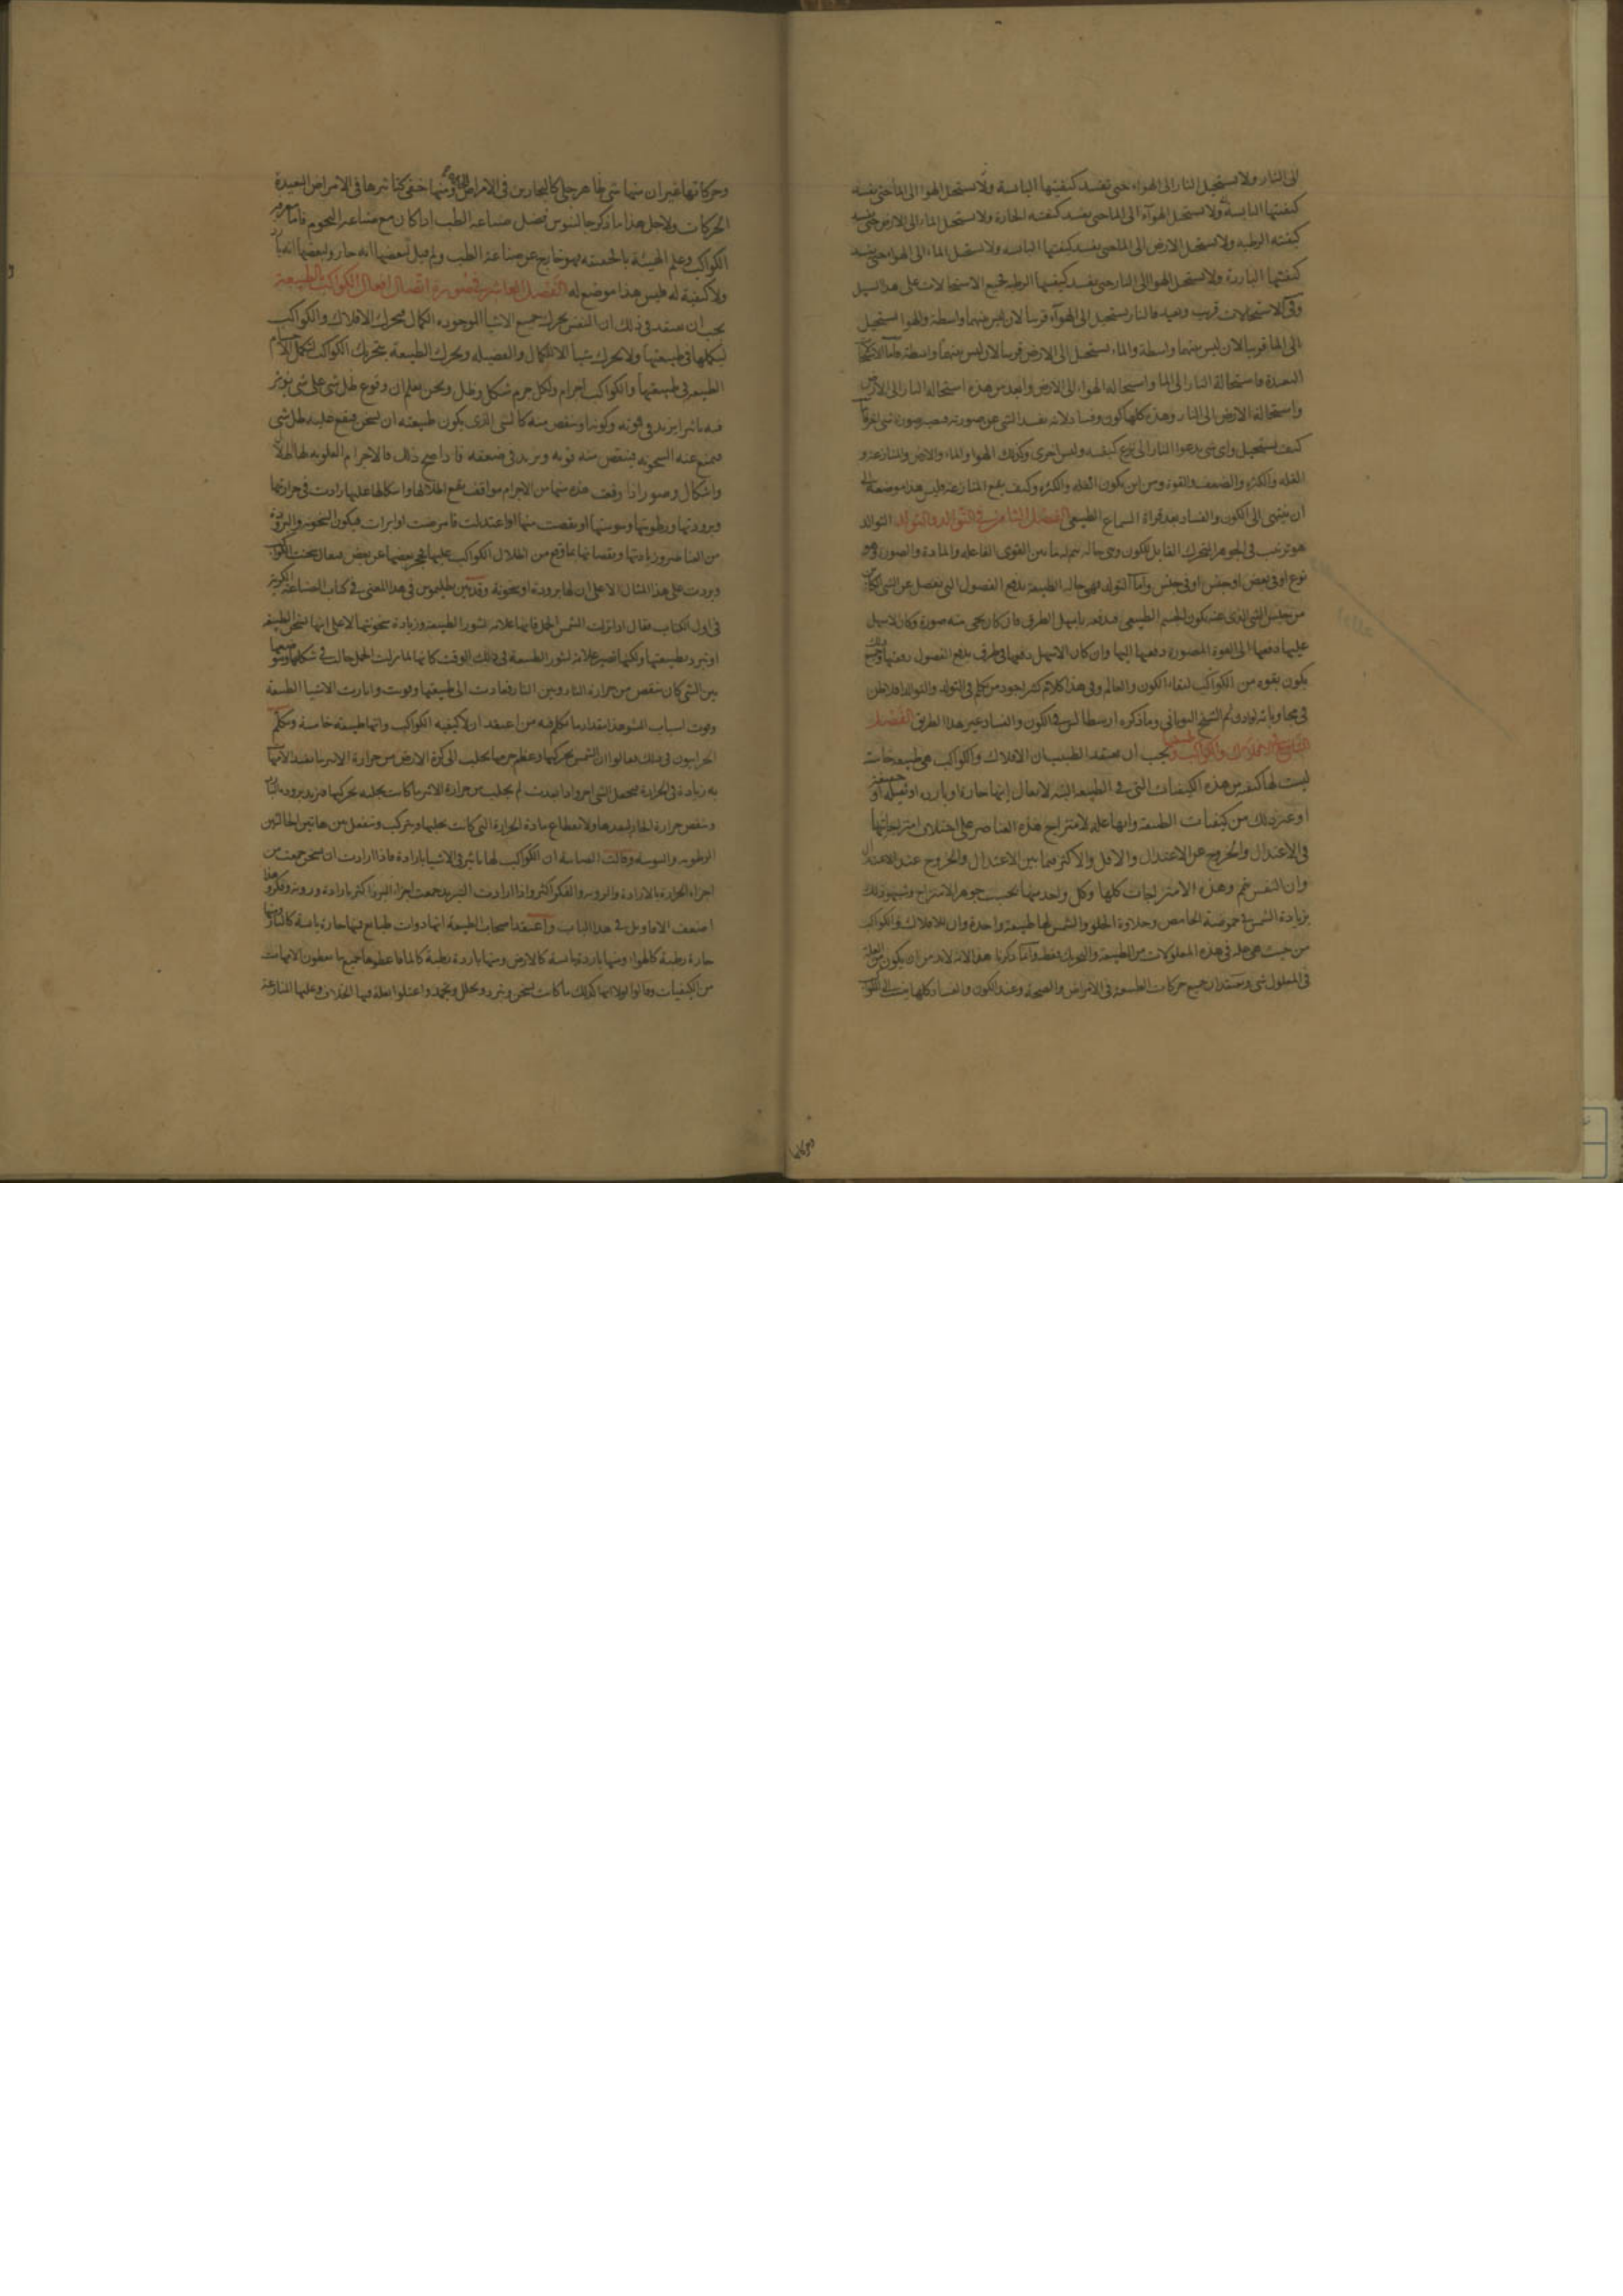 الى النار ولا تستحيل النار الى الهواء حتى تفسد كيفيتها اليابسة ولا يستحيل الهوا الى الماء حتى يفسد
كيفيتها ولا يستحيل الهواء الى الماء حتى يفسد كيفيته الحارة ولا يستحيل الماء الى الارض حتى يفسد
كيفيته الرطبه ولا يستحيل الارض الى الماء حتى يفسد كيفيتها اليابسه ولا يستحيل الماء الى الهواء حتى يفسد
كيفيتها الباردة ولا يستحيل الهوا الى النار حتى يفسد كيفيتها الرطبه فجميع الاستحالات على هذا السبيل
وفى الاستحالات قريب وبعيد فالنار يستحيل الى الهوآء قريبا لان ليس بينهما واسطة والهوا يستحيل
الى الماء قريبا لان ليس بينهما واسطة والماء يستحيل الى الارض قريبا لان ليس بينهما واسطة فاما
البعيدة فاستحالة النار الى الماء واستحاله الهواء الى الارض وابعد من هذه استحالة النار الى الارض
واستحالة الارض الى النار وهذه كلها كون وفساد لانه يفسد الشى عن صورته
كيف يستحيل واى شى يدعوا النار الى كيفيه وليس اخرى وكذلك الهوا والماء والارض والمنازعة و
القله والكثره والضعف والقوة ومن اين يكون القله والكثره وكيف يقع المنازعة وليس هذا موضعه الى
ان ينتهى الى الكون والفساد بعد قراة السماع الطبيعى الفصل الثامن فى التوالد والتولد التوالد
هو تركيب فى الجوهر المتحرك القابل للكون وهى حاله من القوى الفاعله والمادة والصورة
نوع او فى بعض او جنس او فى جنس واما التولد فهى حاله الطبيعة بدفع الفصول التى يفصل عن الشى
من جنس الشى الذى عنه يكون الجسم الطبيعى باسهل الطرق فان كان يجى منه صورة وكان لاسهل
عليها دفعها الى القوة المصورة دفعها اليها وان كان الاسهل دفعها فى طريق بدفع الفصول دفعتها
يكون بقوه من الكواكب لبقاء الكون والعالم وفى هذا كلام كثير اجود من تكلم فى التولد والتوالد افلاطن
ثم الشيخ اليونانى وما ذكره ارسطا ليس فى الكون والفساد غير هذا الطريق الفصل
التاسع فى الافلاك والكواكب يجب ان يعتقد الطبيب ان الافلاك والكواكب هى طبيعه خامسة
ليست لها كيفيه من هذه الكيفيات التى فى الطبيعه البته لا يقال انها حارة او بارده او ثقيله او
او غير ذلك من كيفيات الطبيعة وانها علة لامتزاج هذه العناصر على اختلاف امتزاجاتها
فى الاعتدال والخروج عن الاعتدال والاقل والاكثر فيما بين الاعتدال والخروج عند الاعتدال
وان النفس وهذه الامتزاجات كلها وكل واحد منها بحسب جوهر الامتزاج
بزيادة الشمس فى حموضة الحامض وحلاوة الحلو والشمس لها طبيعة واحدة وان للافلاك والكواكب
من حيث هى علة فى هذه المعلولات من الطبيعة والتحريك فقط وانما ذكرنا هذا لانه لابد من ان يكون
فى المعلول شى ويعتقد ان جميع حركات الطبيعة فى الامراض والصحة وعند الكون والفساد كلها
وحركاتها
وحركاتها غير ان منها شى ظاهر جلى كالبحارين فى الامراض ومنها خفى كتاثيرها فى الامراض البعيدة
الحركات ولاجل هذا ما ذكر جالينوس فضل صناعه الطب اذا كان مع صناعه النجوم فاما
الكواكب وعلم الهيئة بالحقيقه فهو خارج عن صناعة الطب ولم قيل لبعضها انه حار ولبعضها انه بارد
ولا كيفية له فليس هذا موضع له الفصل العاشر فى صورة اتصال افعال الكواكب بالطبيعة
يجب ان يعتقد فى ذلك ان النفس يحرك جميع الاشيا الموجوده الكمال فيحرك الافلاك والكواكب
ليكملها فى طبيعتها ولا يحرك شيا الا للكمال والفضيله ويحرك الطبيعة بتحريك الكواكب
الطبيعة فى طبيعتها والكواكب اجرام ولكل جرم شكل وظل ونحن نعلم ان وقوع ظل شى على شى يوثر
فيه تاثيرا يزيد فى قوته وكونه او ينقص منه كالشى الذى يكون طبيعته ان يسخن فيقع عليه ظل شى
فيمنع عنه السخونه فينقص منه قوته ويزيد فى ضعفه فاذا صح ذلك فالاجرام العلويه لها اظلال
واشكال وصور اذا وقعت هذه منها من الاجرام مواقف يقع اظلالها واشكالها عليها زادت فى حرارتها
وبرودتها ورطوبتها ويبوستها او نقصت منها او اعتدلت فامرضت او ابرات فيكون السخونه والبروده
من العناصر وزيادتها ونقصانها بما وقع من اظلال الكواكب عليها بعضها عن بعض فيقال سخنت
وبردت على هذا المثال لا على ان لها بروده او سخونة وقد بين بطلميوس فى هذا المعنى فى كتاب الصناعة
فى اول الكتاب فقال اذا نزلت الشمس الحمل فانها علامه لثور الطبيعه وزيادة سخونتها لا على انها تسخن الطبيعه
او تبرد بطبيعتها ولكنها تصير علامة لثور الطبيعة فى ذلك الوقت كانها لما نزلت الحمل حالت فى
بين الشى كان ينقص من حرارة النار وبين النار فعادت الى طبيعتها وقويت واثارت الاشيا الطبيعة
وقويت اسباب النشو هذا مقدار ما تكلم فيه من اعتقد ان لا كيفيه للكواكب وانها طبيعه خامسة وتكلم
الحرانيون فى ذلك فقالوا ان الشمس بحركتها وعظم جرمها يجلب الى كرة الارض من حرارة الاثير
به زيادة فى الحرارة واذا بعدت لم يجلب من حرارة الاثير ما كانت يجلبه بحركتها فيزيد بروده
وينقص حرارة الحار لبعدها ولانقطاع مادة الحرارة التى كانت يجلبها ويتركب وينفعل من هاتين الحالتين
الرطوبه واليبوسه وقالت الصابيه ان الكواكب لها تاثير فى الاشيا بارادة فاذا ارادت ان تسخن جمعت من
اجزاء الحرارة بالارادة والرويه والفكر اكثر واذا ارادت التبريد جمعت اجزاء البرد اكثر بارادة وروية وفكر وهذا
اضعف الاقاويل فى هذا الباب واعتقد اصحاب الطبيعة انها ذوات طبايع فمنها حارة يابسة كالنار ومنها
حارة رطبة كالهواء ومنها باردة يابسة كالارض ومنها باردة رطبة كالماء جميع ما يعطون الامهات
من الكيفيات وقالوا لولا انها كذلك ما كانت تسخن وتبرد وتحلل وتجمد واعتلوا بعلة فيها الخلاف وعليها المنازعة